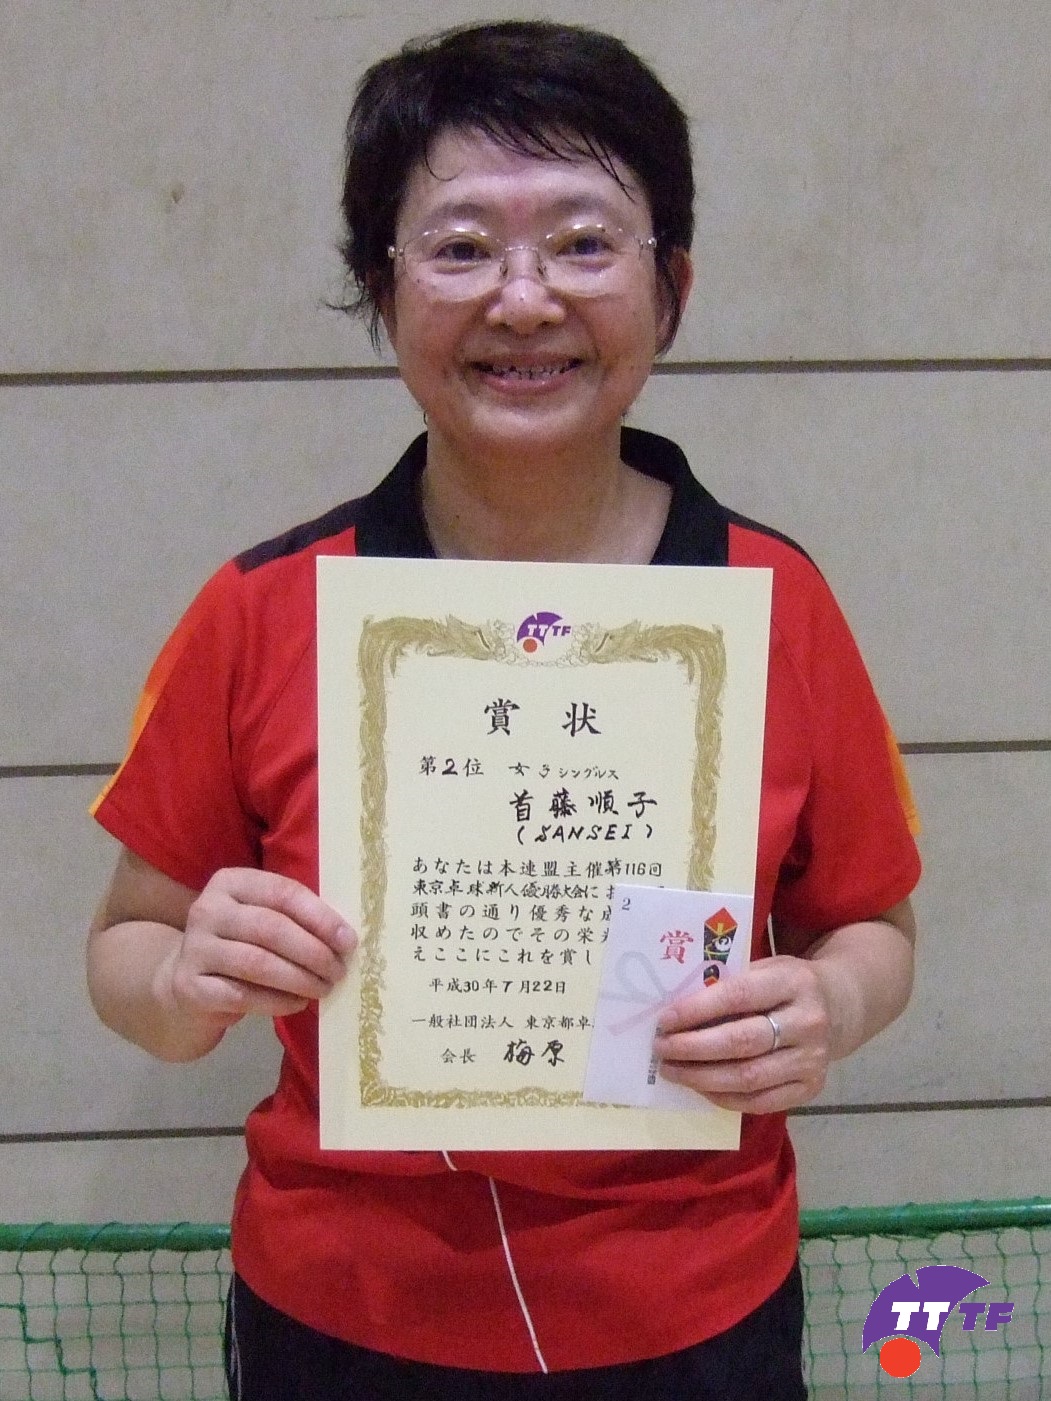 TTTF
賞 状
第2位 女子シングルス
首藤順子
(SANSEI)
あなたは本連盟主催第116回
東京卓球新人優勝大会にお
頭書の通り優秀な成
収めたのでその栄
えここにこれを賞し
平成30年7月22日
一般社団法人 東京都卓
会長 梅原
2
賞
TTTF